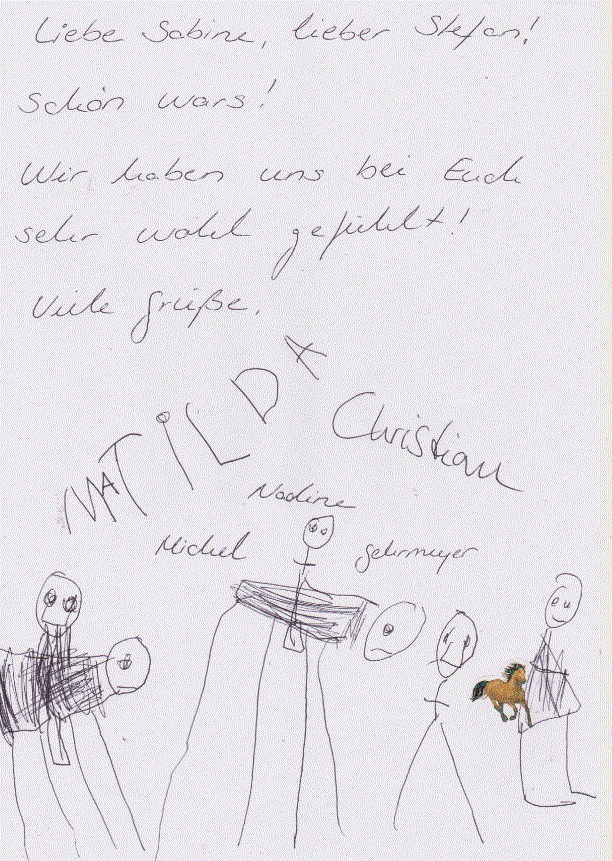 Liebe Sabine, lieber Stefan!
Schön wars!
Wir haben uns bei Euch
sehr wohl gefühlt!
Viele Grüße,
MATiLDA
Christian
Nadine
Michel Gehrmeyer